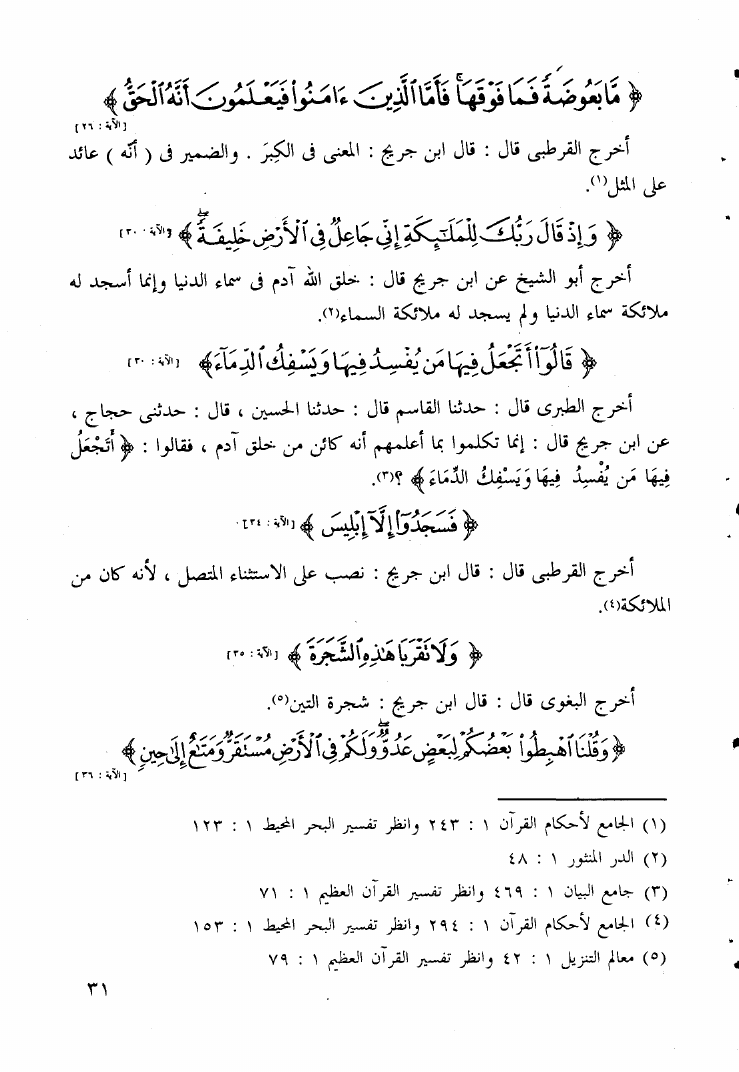 ﴿ مَّا بَعُوضَةً فَمَا فَوْقَهَا ۚ فَأَمَّا الَّذِينَ ءَامَنُوا فَيَعْلَمُونَ أَنَّهُ الْحَقُّ ﴾
[ الآية : ٢٦ ]
أخرج القرطبى قال : قال ابن جريج : المعنى فى الكِبَر . والضمير فى ( أنّه ) عائد
على المثل(١).
﴿ وَإِذْ قَالَ رَبُّكَ لِلْمَلَـٰٓئِكَةِ إِنِّي جَاعِلٌ فِي الْأَرْضِ خَلِيفَةً ۖ ﴾ [الآية : ٣٠]
أخرج أبو الشيخ عن ابن جريج قال : خلق الله آدم فى سماء الدنيا وإنما أسجد له
ملائكة سماء الدنيا ولم يسجد له ملائكة السماء(٢).
﴿ قَالُوٓا أَتَجْعَلُ فِيهَا مَن يُفْسِدُ فِيهَا وَيَسْفِكُ الدِّمَآءَ ﴾ [الآية : ٣٠]
أخرج الطبرى قال : حدثنا القاسم قال : حدثنا الحسين ، قال : حدثنى حجاج ،
عن ابن جريج قال : إنما تكلموا بما أعلمهم أنه كائن من خلق آدم ، فقالوا : ﴿ أَتَجْعَلُ
فِيهَا مَن يُفْسِدُ فِيهَا وَيَسْفِكُ الدِّمَاءَ ﴾ ؟(٣).
﴿ فَسَجَدُوٓا إِلَّآ إِبْلِيسَ ﴾ [الآية : ٣٤]
أخرج القرطبى قال : قال ابن جريج : نصب على الاستثناء المتصل ، لأنه كان من
الملائكة(٤).
﴿ وَلَا تَقْرَبَا هَـٰذِهِ الشَّجَرَةَ ﴾ [الآية : ٣٥]
أخرج البغوى قال : قال ابن جريج : شجرة التين(٥).
﴿ وَقُلْنَا اهْبِطُوا بَعْضُكُمْ لِبَعْضٍ عَدُوٌّ ۖ وَلَكُمْ فِي الْأَرْضِ مُسْتَقَرٌّ وَمَتَـٰعٌ إِلَىٰ حِينٍ ﴾
[الآية : ٣٦]
(١) الجامع لأحكام القرآن ١ : ٢٤٣ وانظر تفسير البحر المحيط ١ : ١٢٣
(٢) الدر المنثور ١ : ٤٨
(٣) جامع البيان ١ : ٤٦٩ وانظر تفسير القرآن العظيم ١ : ٧١
(٤) الجامع لأحكام القرآن ١ : ٢٩٤ وانظر تفسير البحر المحيط ١ : ١٥٣
(٥) معالم التنزيل ١ : ٤٢ وانظر تفسير القرآن العظيم ١ : ٧٩
٣١